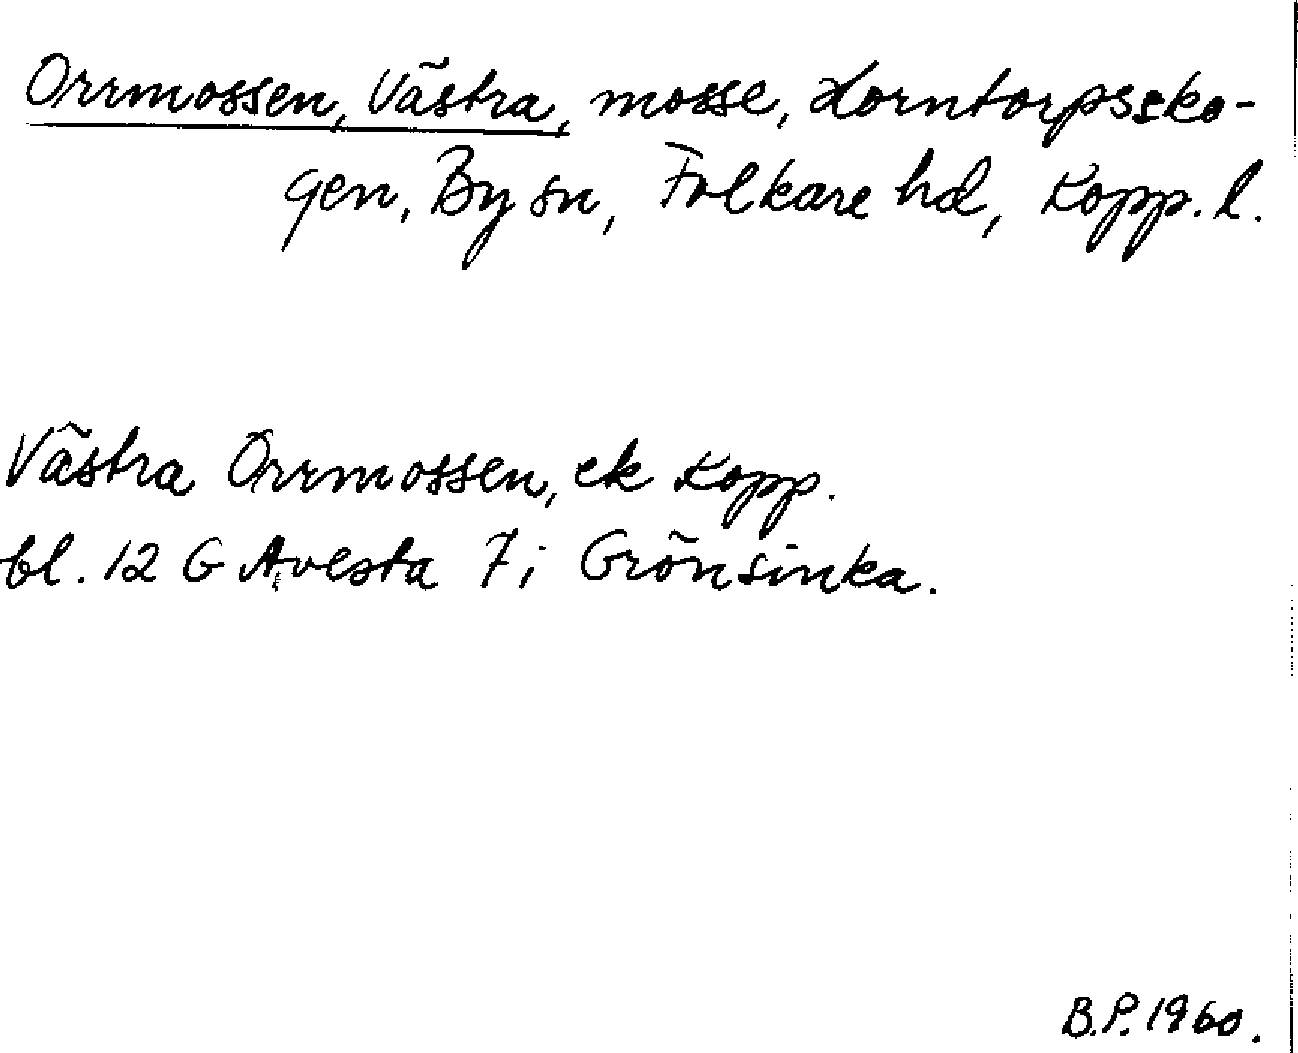 Orrmossen, Västra, mosse, Horntorpssko-
gen, By sn, Folkare hd, Kopp. l.
Västra Orrmossen, ek Kopp.
bl. 12 G Avesta 7i Grönsinka.
B.P. 1960.